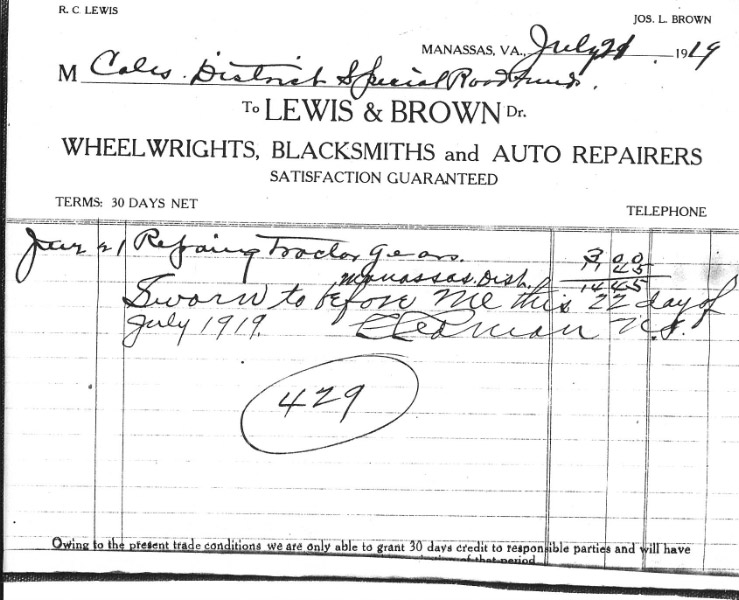 R. C. LEWIS
JOS. L. BROWN
MANASSAS, VA., July 21 1919
M Coles District Special Road Fund.
To LEWIS & BROWN Dr.
WHEELWRIGHTS, BLACKSMITHS and AUTO REPAIRERS
SATISFACTION GUARANTEED
TERMS: 30 DAYS NET
TELEPHONE
21 Repairing tractor gears. 3 00
Manassas Dist. 11 45
14 45
Sworn to before me this 22 day of
July 1919.
429
Owing to the present trade conditions we are only able to grant 30 days credit to responsible parties and will have
of that period